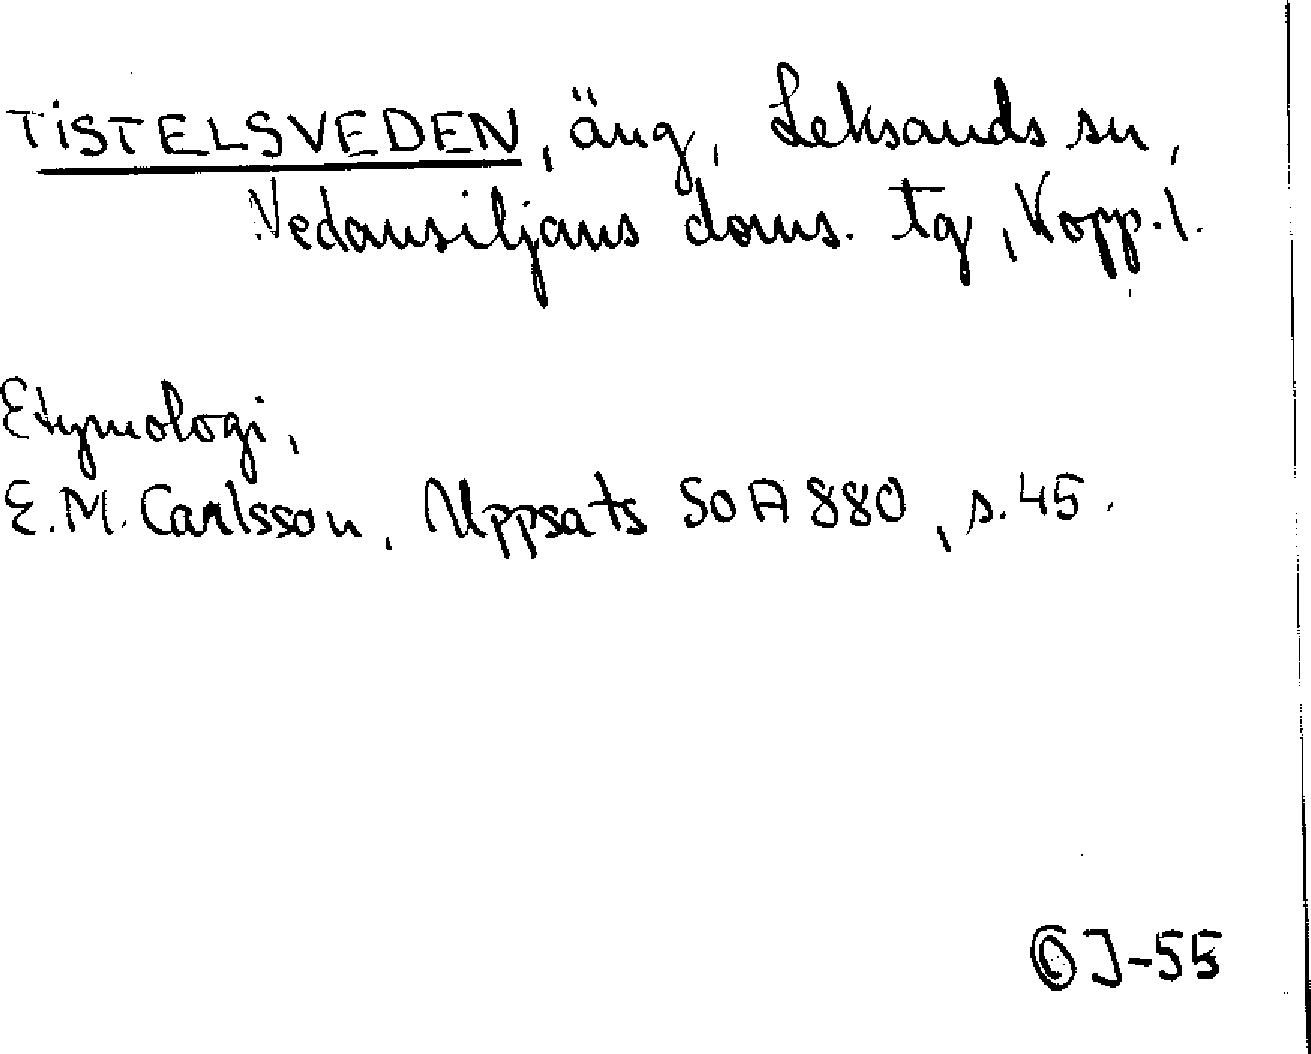 TISTELSVEDEN, äng, Leksands sn,
Nedansiljans doms. tg, Kopp. l.
Etymologi,
E.M. Carlsson, Uppsats SOA 880, s. 45.
OJ-55